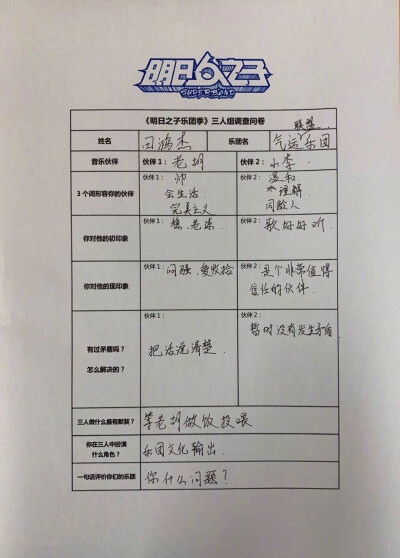 明日之子
SUPERBAND
《明日之子乐团季》三人组调查问卷
姓名 田鸿杰 乐团名 气运联盟乐团
音乐伙伴 伙伴1: 老胡 伙伴2: 小李.
3个词形容你的伙伴
伙伴1: 帅
会生活
完美主义
伙伴2: 温和
理解
同龄人
你对他的初印象
伙伴1: 老练
伙伴2: 歌好好听.
你对他的现印象
伙伴1: 闷骚、爱收拾
伙伴2: 是个非常值得
信任的伙伴.
有过矛盾吗?
怎么解决的?
伙伴1:
把话说清楚.
伙伴2:
暂时没有发生矛盾
三人做什么最有默契? 等老胡做饭投喂
你在三人中扮演
什么角色? 乐团文化输出.
一句话评价你们的乐团 你什么问题?